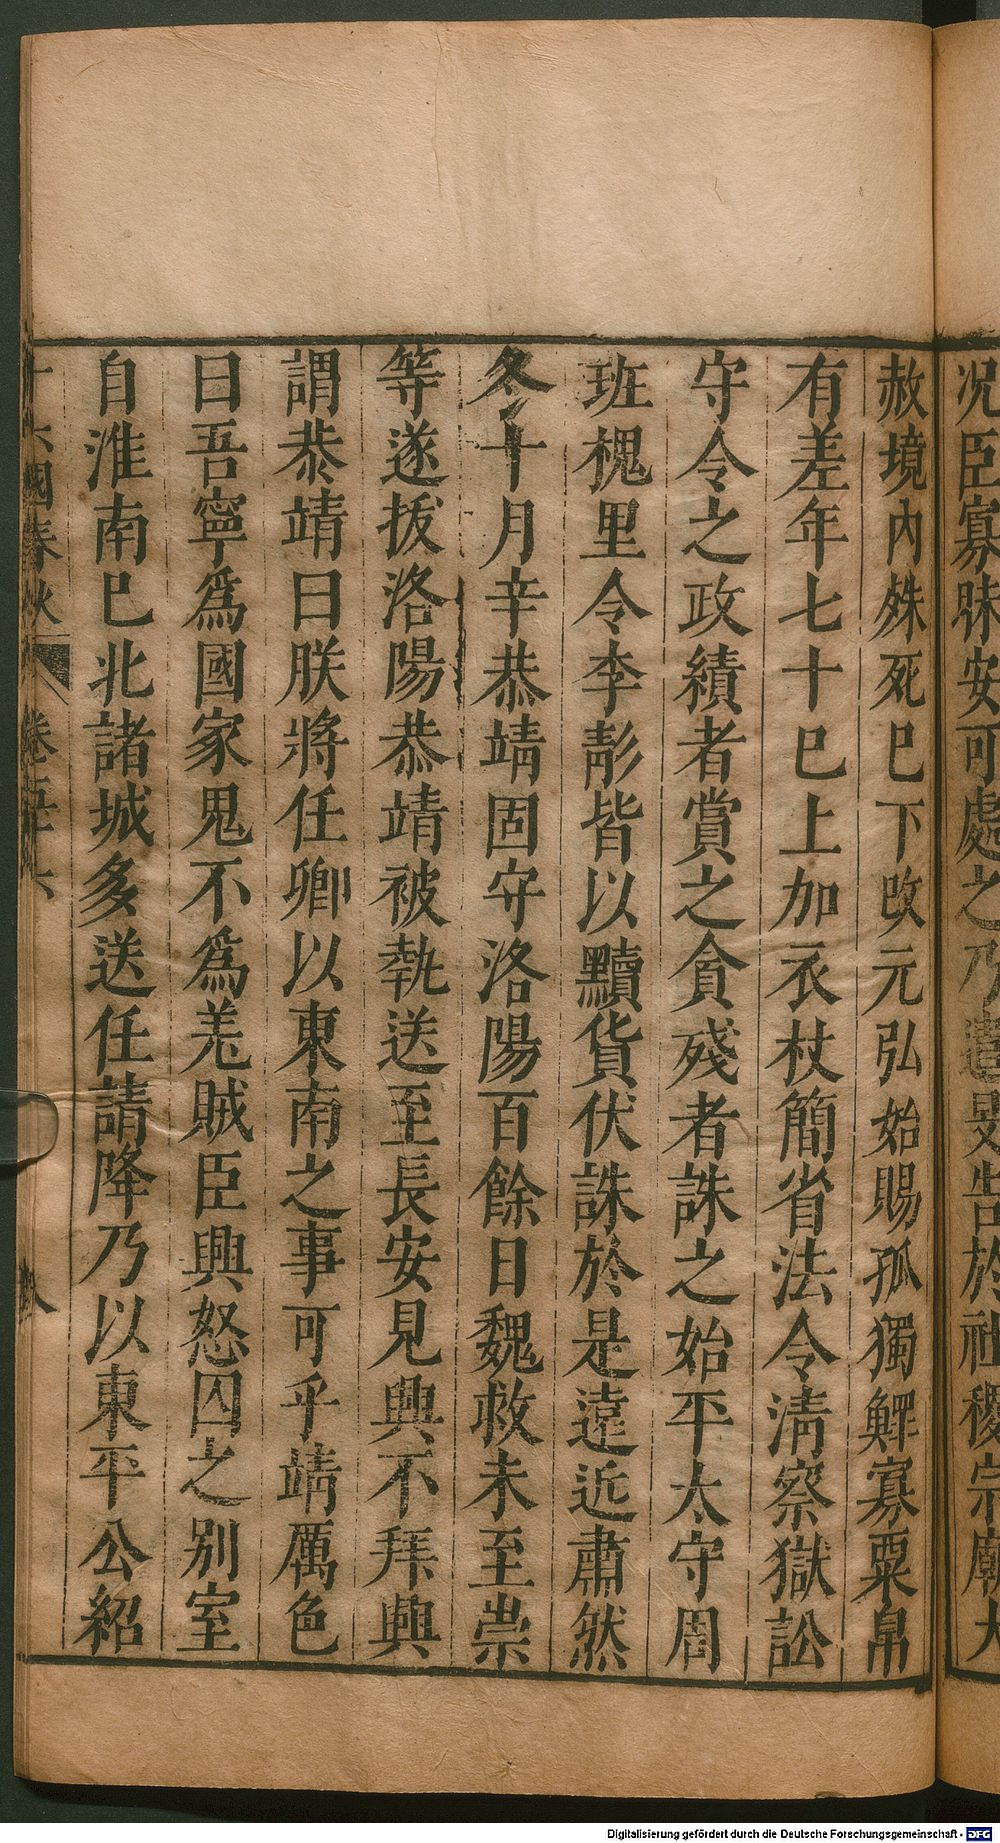 況臣寡昧安可處之乃遣旻告於社稷宗廟大
赦境內殊死巳下改元弘始賜孤獨鰥寡粟帛
有差年七十巳上加衣杖簡省法令清察獄訟
守令之政績者賞之貪殘者誅之始平太守周
班槐里令李彭皆以黷貨伏誅於是遠近肅然
冬十月辛恭靖固守洛陽百餘日魏救未至崇
等遂拔洛陽恭靖被執送至長安見興不拜興
謂恭靖曰朕將任卿以東南之事可乎靖厲色
曰吾寧爲國家鬼不爲羌賊臣興怒囚之別室
自淮南巳北諸城多送任請降乃以東平公紹
十六國春秋 卷五十六 八
Digitalisierung gefördert durch die Deutsche Forschungsgemeinschaft - DFG